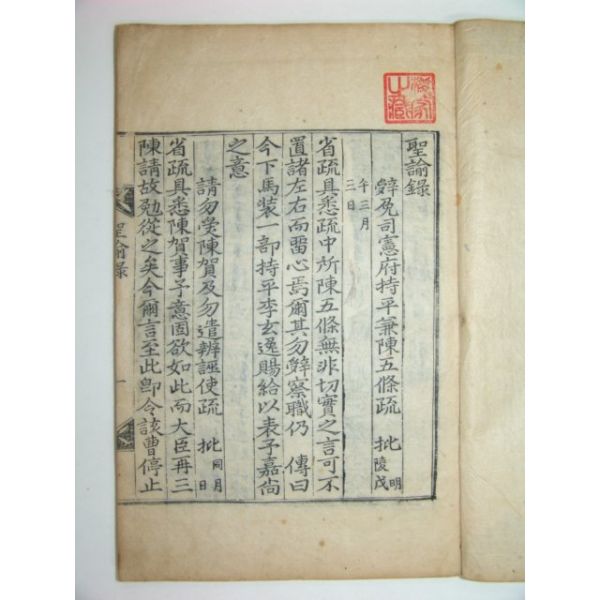 聖諭錄
辭免司憲府持平兼陳五條疏 批 明陵戊
午三月
三日
省疏具悉疏中所陳五條無非切實之言可不
置諸左右而留心焉爾其勿辭察職仍 傳曰
今下馬裝一部持平李玄逸賜給以表予嘉尙
之意
請勿受陳賀及勿遣辨誣使疏 批 同月日
省疏具悉陳賀事予意固欲如此而大臣再三
陳請故勉從之矣今爾言至此卽令該曹停止
聖諭錄
一